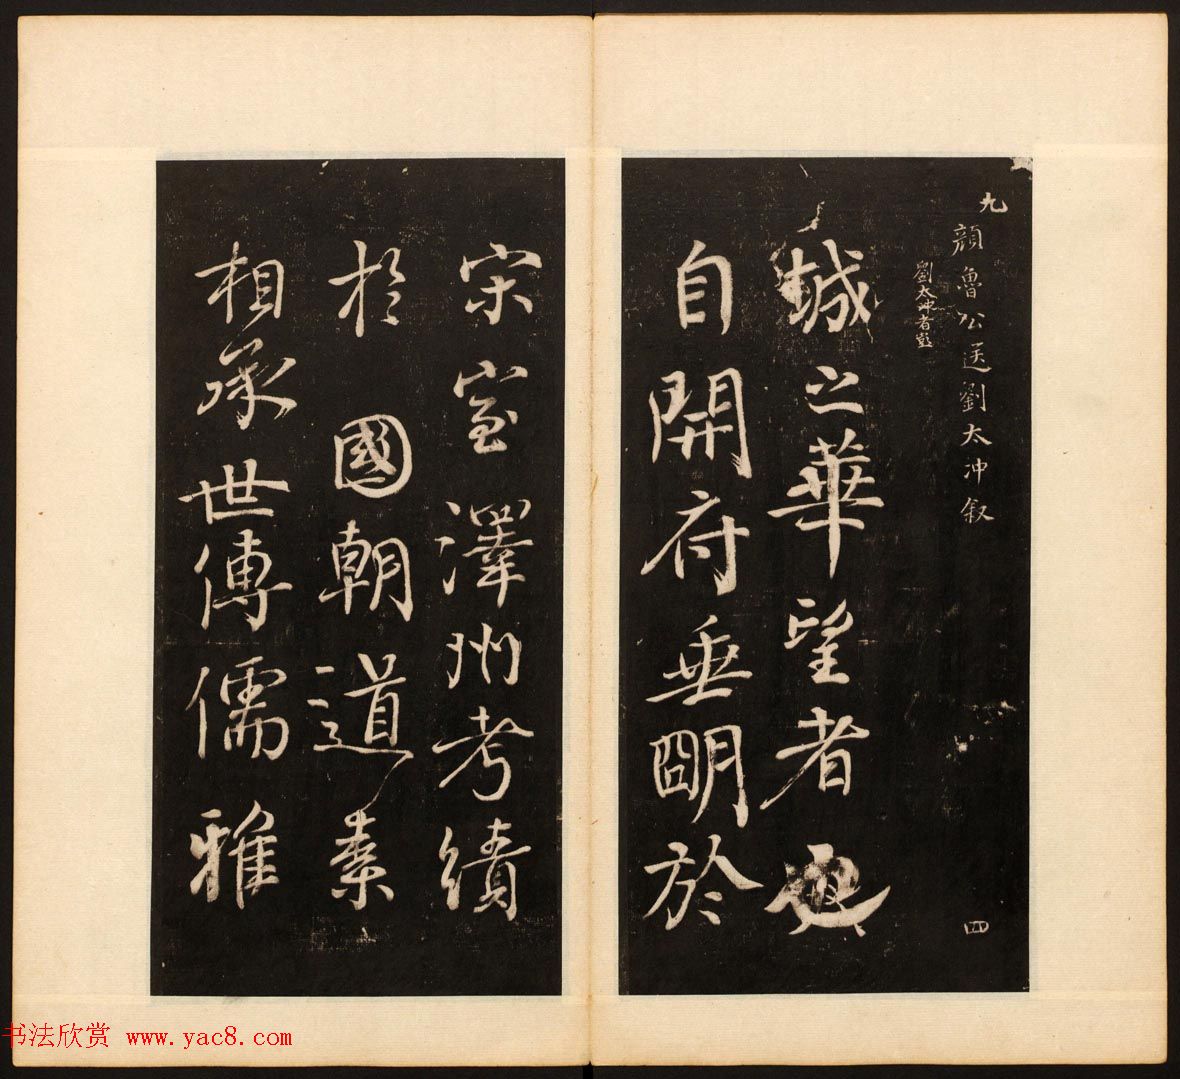 九
顏魯公送劉太冲叙
劉太冲者彭
城之華望者也
自開府垂朙於
四
宋室澤州考績
扵國朝道素
相承世傳儒雅
书法欣赏 www.yac8.com